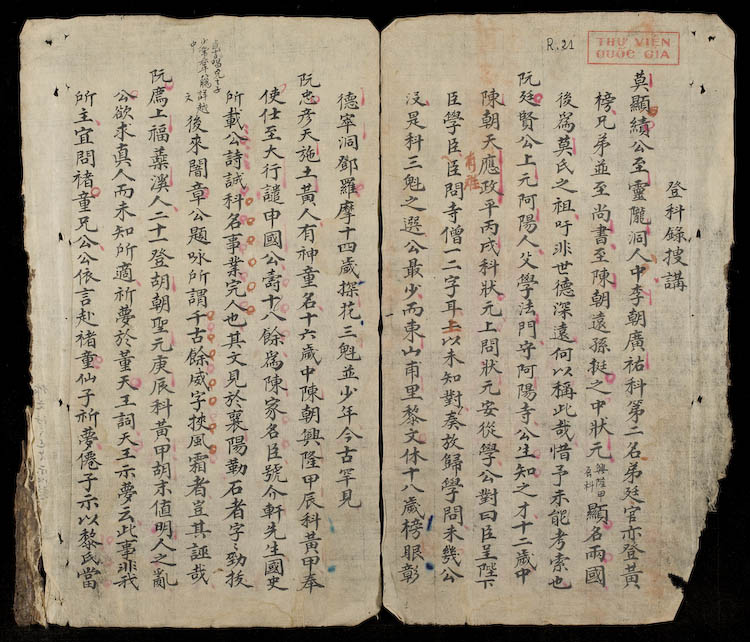 R.21
THƯ VIỆN
QUỐC GIA
登科錄搜講
莫顯績公至靈隴洞人中李朝廣祐科第二名弟廷官亦登黃
榜兄弟並至尚書至陳朝遠孫挺之中狀元興隆甲辰科顯名兩國
後為莫氏之祖吁非世德深遠何以稱此哉惜予未能考索也
阮廷賢公上元阿陽人父學法門守阿陽寺公生知之才十二歲中
陳朝天應政平丙戌科狀元上問狀元安從學公對曰臣呈陛下
臣學臣臣問寺僧一二字耳上以未知對奏故歸學問未幾公
沒是科三魁之選公最少而東山甫里黎文休十八歲榜眼彰
德寧洞鄧羅摩十四歲探花三魁並少年今古罕見
阮忠彥天施土黃人有神童名十六歲中陳朝興隆甲辰科黃甲奉
使仕至大行譴申國公壽十八餘為陳家名臣號介軒先生國史
所載公詩誠科名事業完人也其文見於襄陽勒石者字字勁拔
後來闇章公題咏所謂千古餘威字挾風霜者豈其誣哉
阮廌上福蘂溪人二十一登胡朝聖元庚辰科黃甲胡末值明人之亂
公欲求真人而未知所適祈夢於董天王詞天王示夢云此事非我
所主宜問褚童兄公公依言赴褚童仙子祈夢僊子示以黎氏當